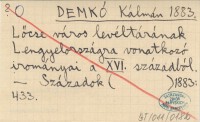 DEMKÓ Kálmán 1883.
Lőcse város levéltárának
Lengyelországra vonatkozó
irományai a XVI. századról
— Századok ( )1883:
433.